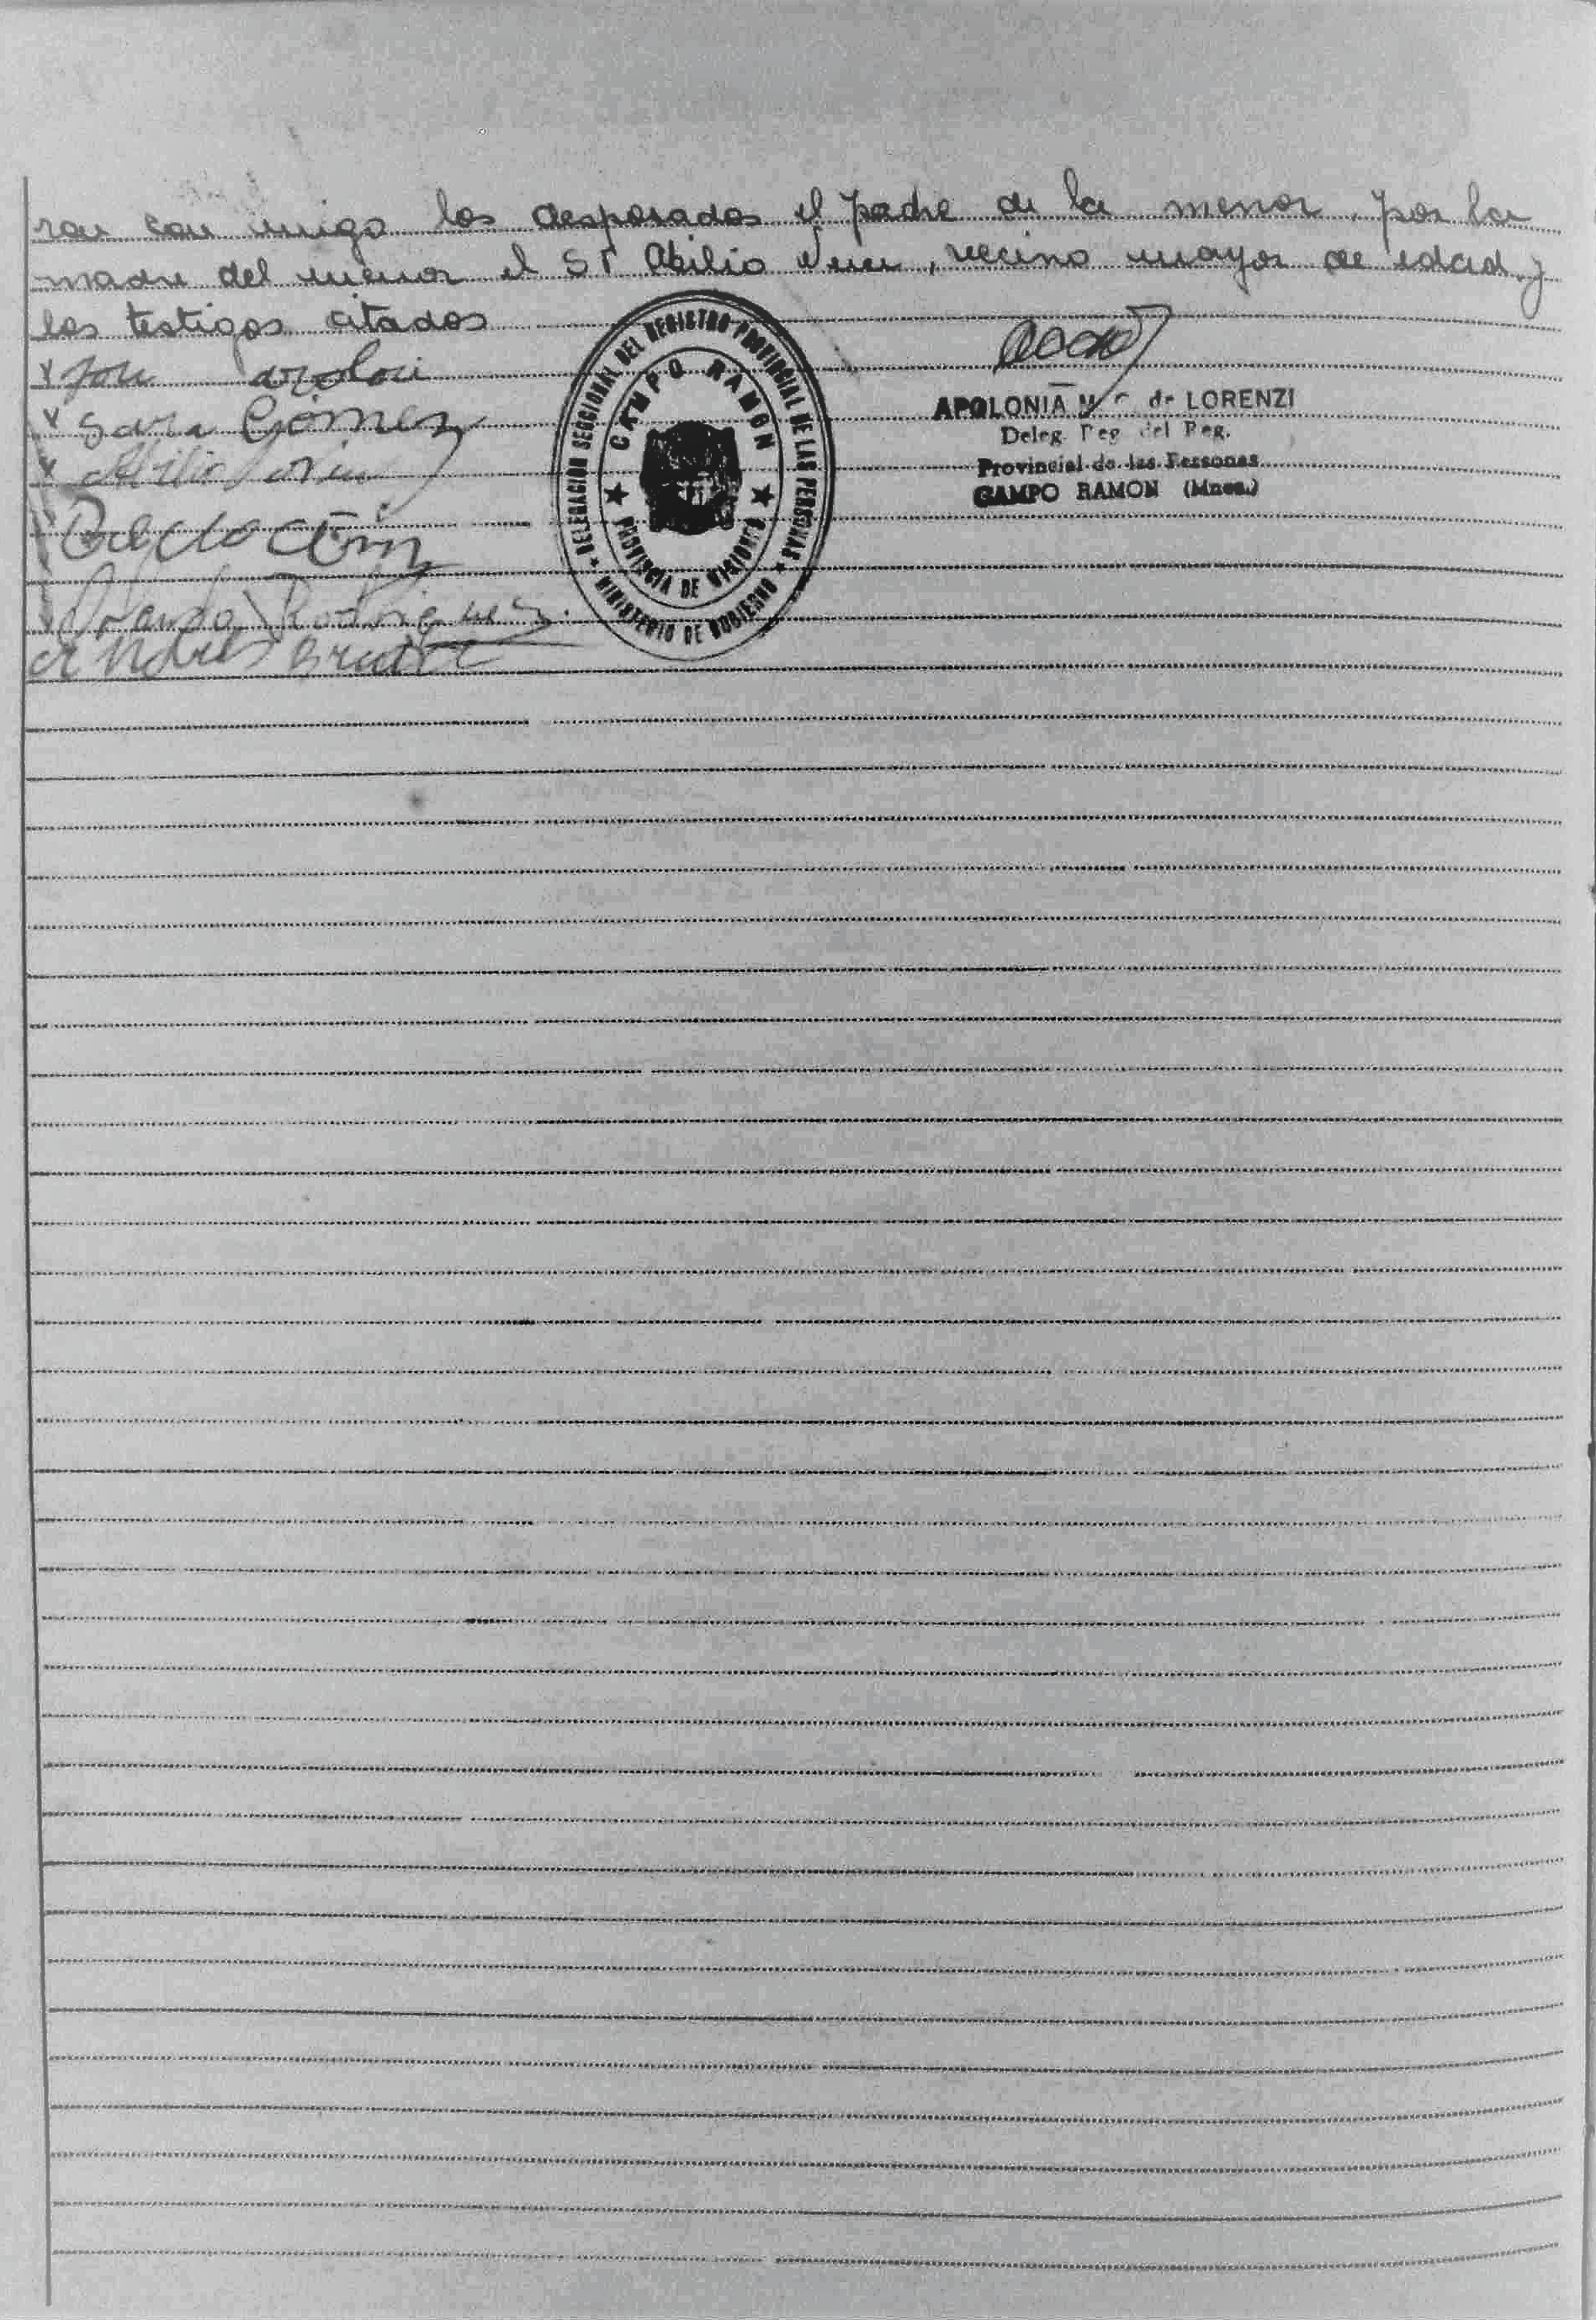 ron con migo los desposados el padre de la menor, por la
madre del menor el Sr Abilio, vecino mayor de edad y
los testigos citados
Sara Gómez
Orlando Rodriguez
Andres
DELEGACION SECCIONAL DEL REGISTRO PROVINCIAL DE LAS PERSONAS
MINISTERIO DE GOBIERNO
CAMPO RAMON
PROVINCIA DE MISIONES
APOLONIA de LORENZI
Deleg. Reg. del Reg.
Provincial de las Personas
CAMPO RAMON (Mnes.)